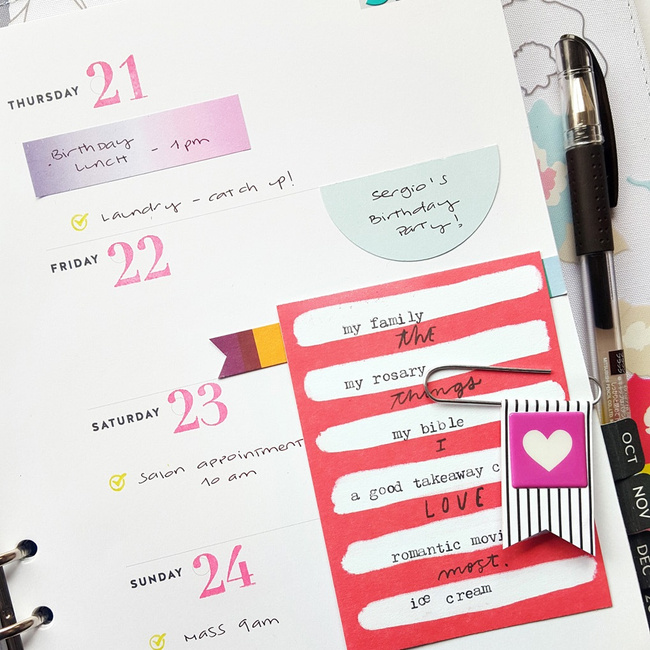 THURSDAY 21
.Birthday
Lunch - 1pm
Laundry - catch up!
FRIDAY 22
Sergio's
Birthday
Party!
SATURDAY 23
Salon appointment
10 am
SUNDAY 24
Mass 9am
my family
the
my rosary
things
my bible
I
a good takeaway c
LOVE
romantic movi
most.
ice cream
OCT
NOV
DEC